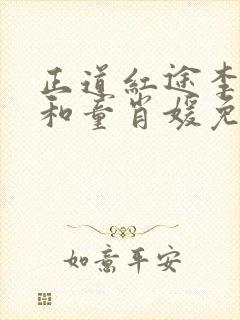 正道红途李
和童肖媛免
如意平安